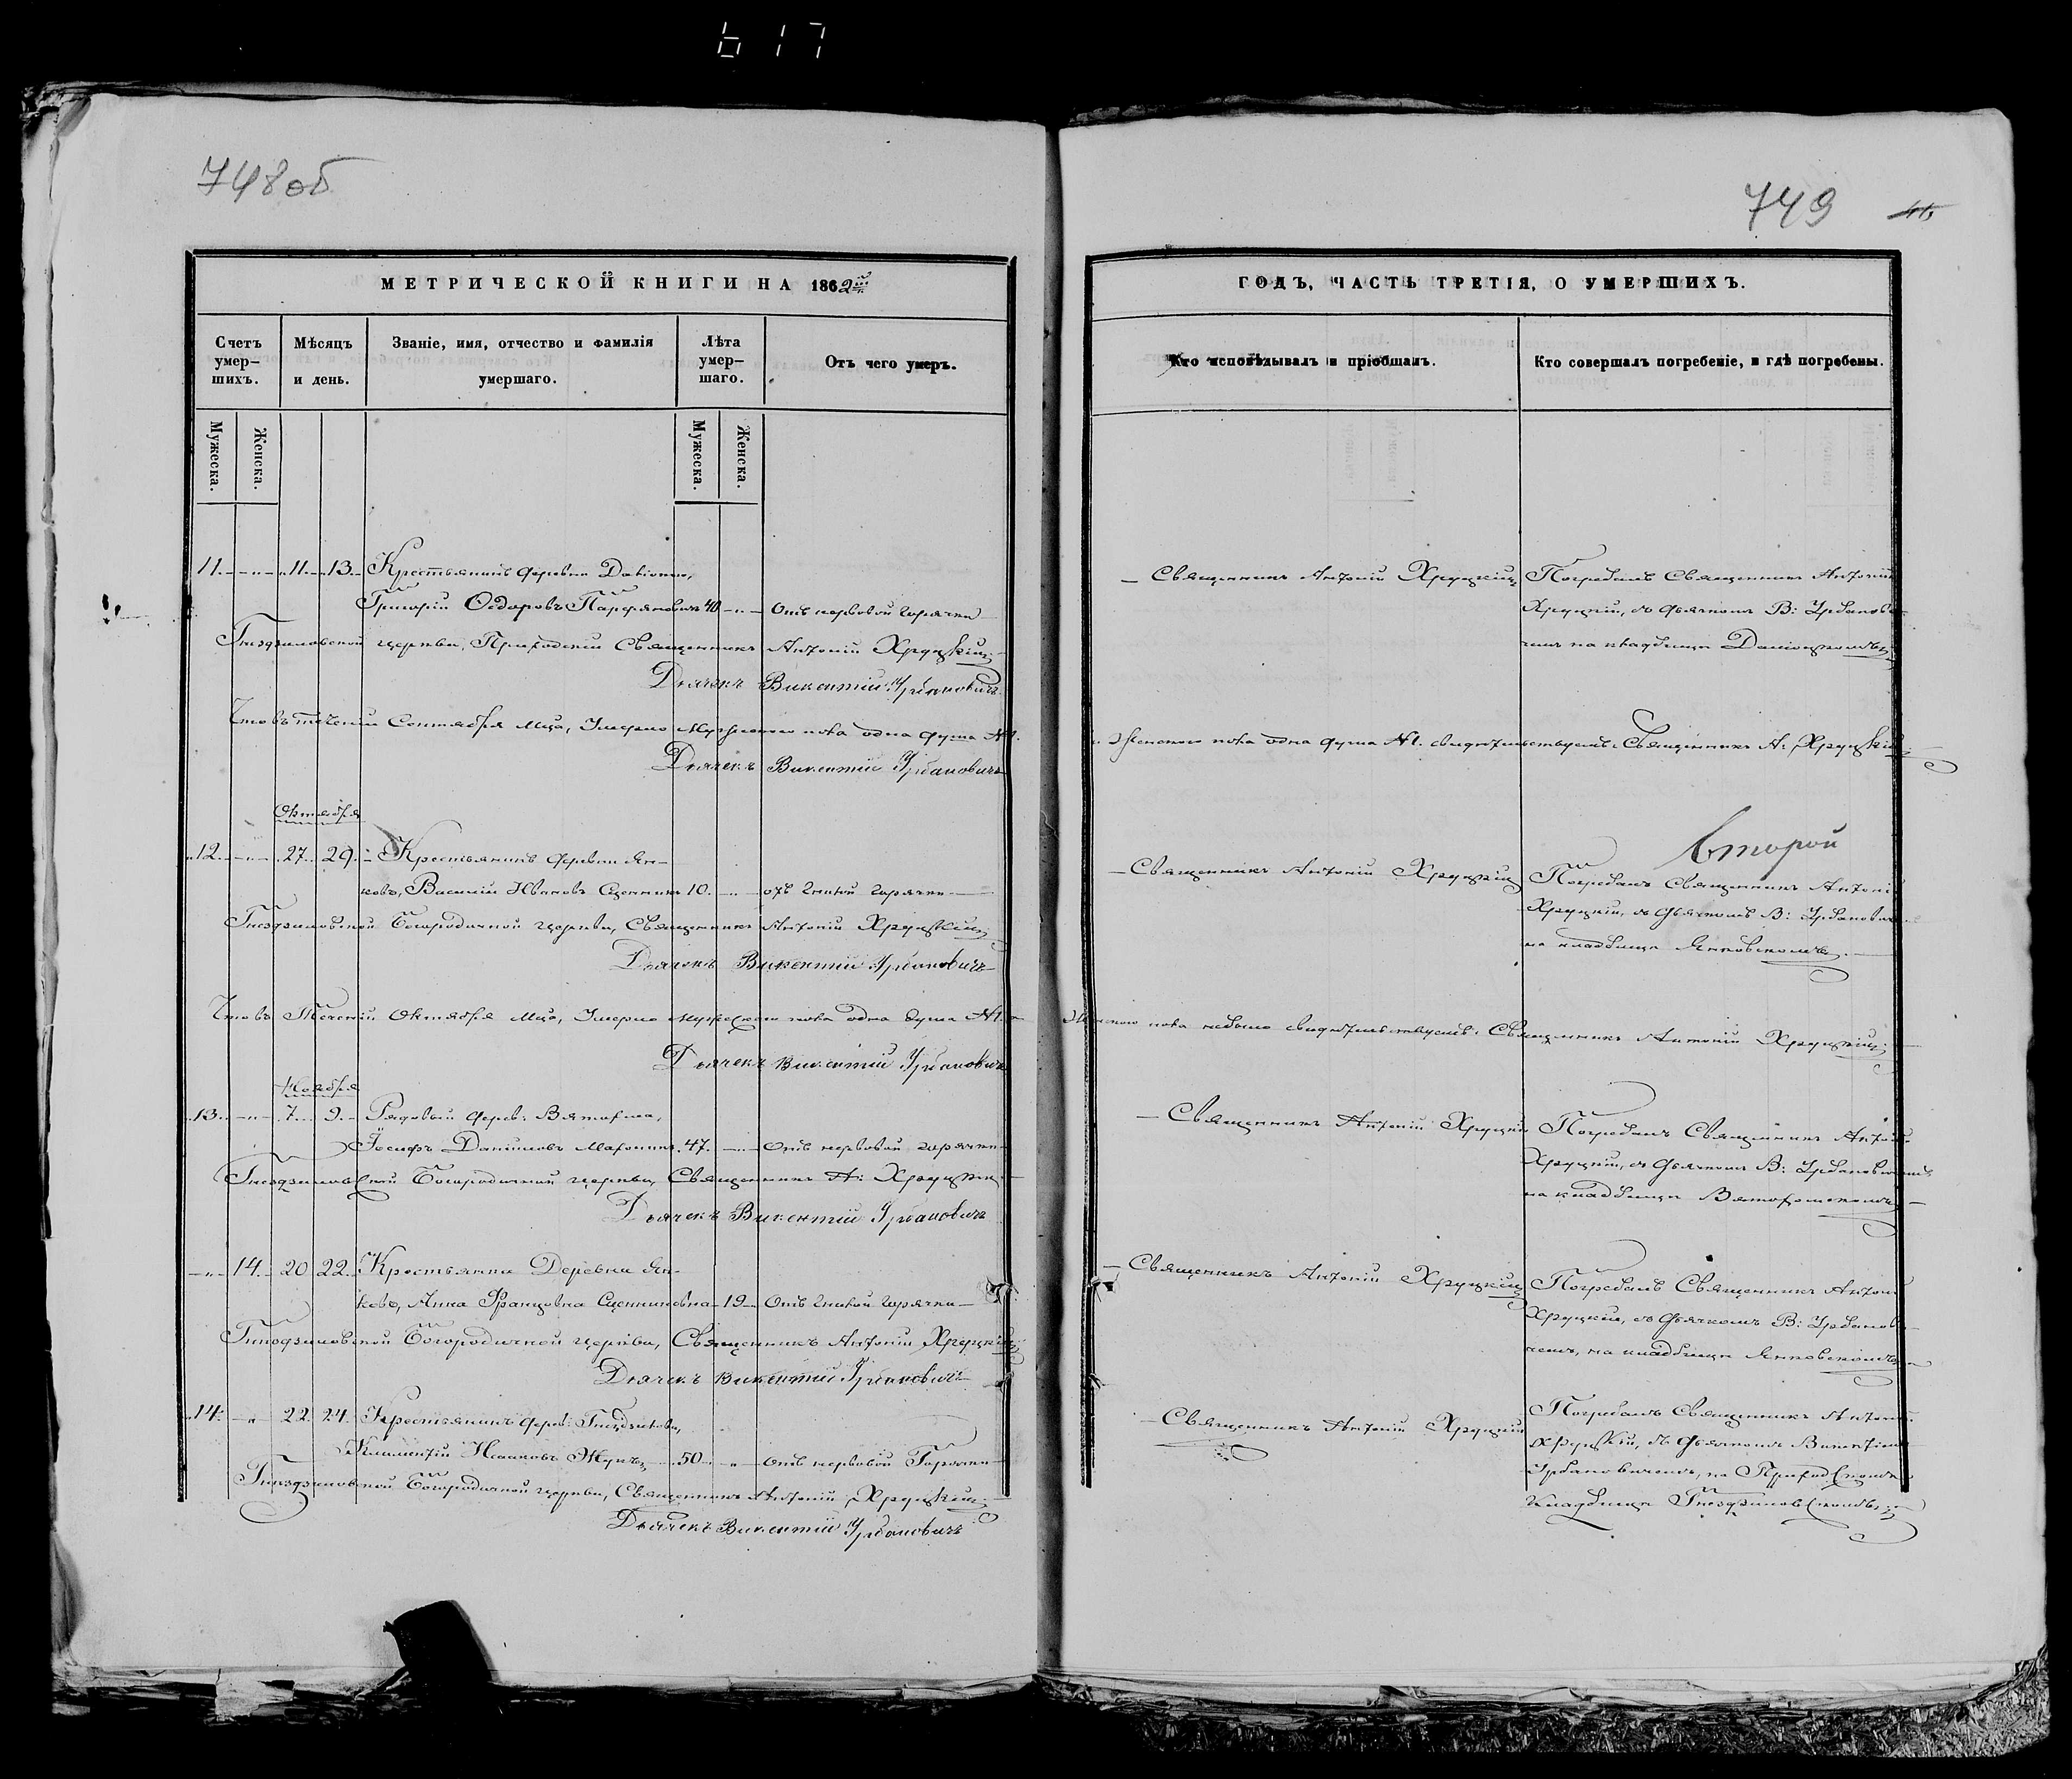 617
748об
МЕТРИЧЕСКОЙ КНИГИ НА 1862й
Счетъ умер-шихъ.
Мѣсяцъ и день.
Званіе, имя, отчество и фамилія умершаго.
Лѣта умер-шаго.
Отъ чего умеръ.
Мужеска.
Женска.
Мужеска.
Женска.
11. 11. 13. Крестьянинъ деревни
Григорій Ѳедоровъ Парфяновичъ 40 Отъ нервовой горячки
Гнездиловской церкви, Приходскій Священникъ Антоній Хруцкій
Дьячекъ Викентій Урбановичъ
Что въ теченіи Сентября мца, Умерло Мужескаго пола одна душа №1.
Дьячекъ Викентій Урбановичъ
Октября
12. 27. 29. Крестьянинъ деревни Ян-
ковъ, Василій Ивановъ Сцепникъ 10. отъ гнилой горячки
Гнездиловской Богородичной церкви, Священникъ Антоній Хруцкій
Дьячекъ Викентій Урбановичъ
Что въ Теченіи Октября мца, Умерло мужескаго пола одна душа №1. и
Дьячекъ Викентій Урбановичъ
Ноября
13. 7. 9. Рядовый дерев:
Іосифъ Даниловъ 47. Отъ нервовой горячки
Гнездиловской Богородичной церкви, Священникъ А: Хруцкій
Дьячекъ Викентій Урбановичъ
14. 20 22. Крестьянка Деревни Ян-
ковъ, Анна Францовна Сцепниковна 19 Отъ гнилой горячки
Гнездиловской Богородичной церкви, Священникъ Антоній Хруцкій
Дьячекъ Викентій Урбановичъ
14. 22. 24. Крестьянинъ дерев: Гнездилова,
Климентій Исаковъ 50 Отъ нервовой Горячки
Гнездиловской Богородичной церкви, Священникъ Антоній Хруцкій
Дьячекъ Викентій Урбановичъ
749
ГОДЪ, ЧАСТЬ ТРЕТІЯ, О УМЕРШИХЪ.
Кто исповѣдывалъ и пріобщалъ.
Кто совершалъ погребеніе, и гдѣ погребены.
Священникъ Антоній Хруцкій
Погребалъ Священникъ Антоній
Хруцкій, съ дьячкомъ В: Урбанови-
чемъ на кладбищи
женскаго пола одна душа №1. свидѣтельствуемъ: Священникъ А: Хруцкій
второй
Священникъ Антоній Хруцкій
Погребалъ Священникъ Антоній
Хруцкій, съ дьячкомъ В: Урбанович
на кладбищи Янковскомъ.
Женскаго пола небыло свидѣтельствуемъ: Священникъ Антоній Хруцкій
Священникъ Антоній Хруцкій
Погребалъ Священникъ Антоній
Хруцкій, съ дьячкомъ В: Урбановичемъ
на кладбищи
Священникъ Антоній Хруцкій
Погребалъ Священникъ Антоній
Хруцкій, съ дьячкомъ В: Урбанови-
чемъ, на кладбищи Янковскомъ
Священникъ Антоній Хруцкій
Погребалъ Священникъ Антоній
Хруцкій, съ дьячкомъ Викентіемъ
Урбановичемъ, на Приходскомъ
Кладбищи Гнездиловскомъ